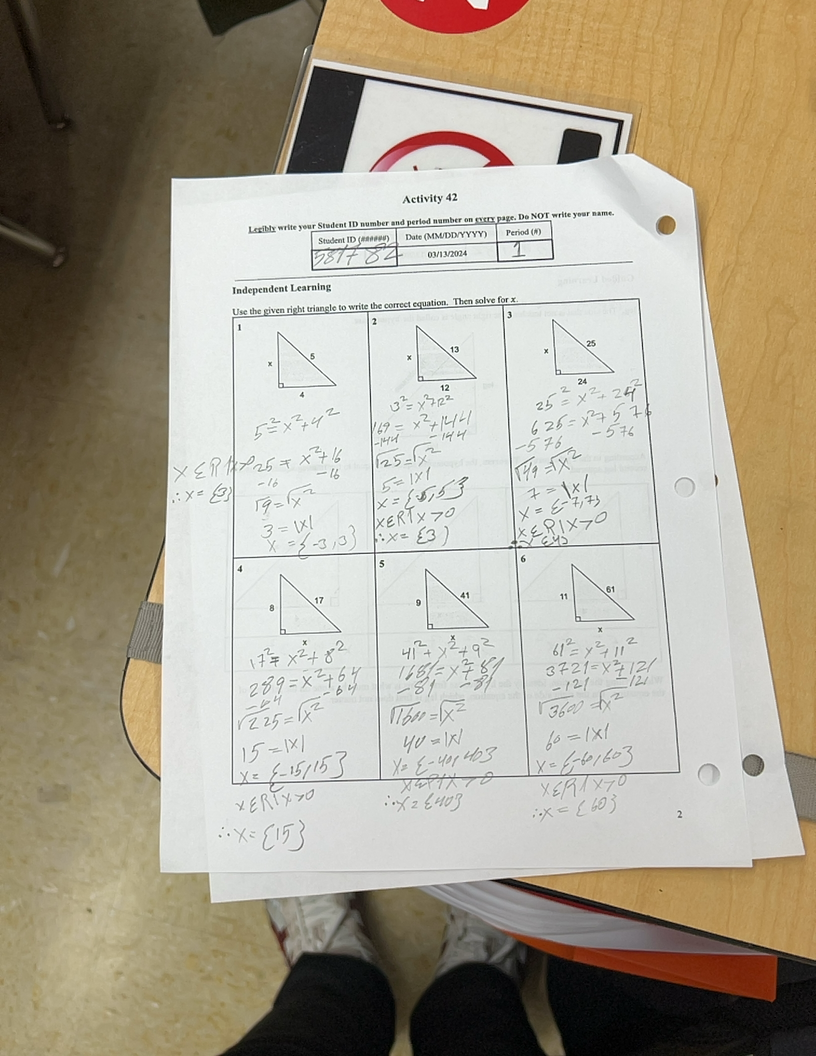 Activity 42
Legibly write your Student ID number and period number on every page. Do NOT write your name.
Student ID (######) Date (MM/DD/YYYY) Period (#)
581782 03/13/2024 1
Independent Learning
Use the given right triangle to write the correct equation. Then solve for x.
1
x 5
4
5² = x²+4²
25 = x²+16
-16 -16
√9 = √x²
3 = |x|
x = {-3,3}
∴x = {3}
2
x 13
12
3² = x²+12²
169 = x²+144
-144 -144
√25 = √x²
5 = |x|
x = {-5,5}
xεR|x>0
∴x = {3}
3
x 25
24
25² = x²+24²
625 = x²+576
-576 -576
√49 = √x²
7 = |x|
x = {-7,7}
xεR|x>0
4
8 17
x
17² = x²+8²
289 = x²+64
-64 -64
√225 = √x²
15 = |x|
x = {-15,15}
xεR|x>0
∴x = {15}
5
9 41
x
41² + x²+9²
1681 = x²+81
-81 -81
√1600 = √x²
40 = |x|
x = {-40,40}
xεR|x>0
∴x = {40}
6
11 61
x
61² = x²+11²
3721 = x²+121
-121 -121
√3600 = √x²
60 = |x|
x = {-60,60}
xεR|x>0
∴x = {60}
2